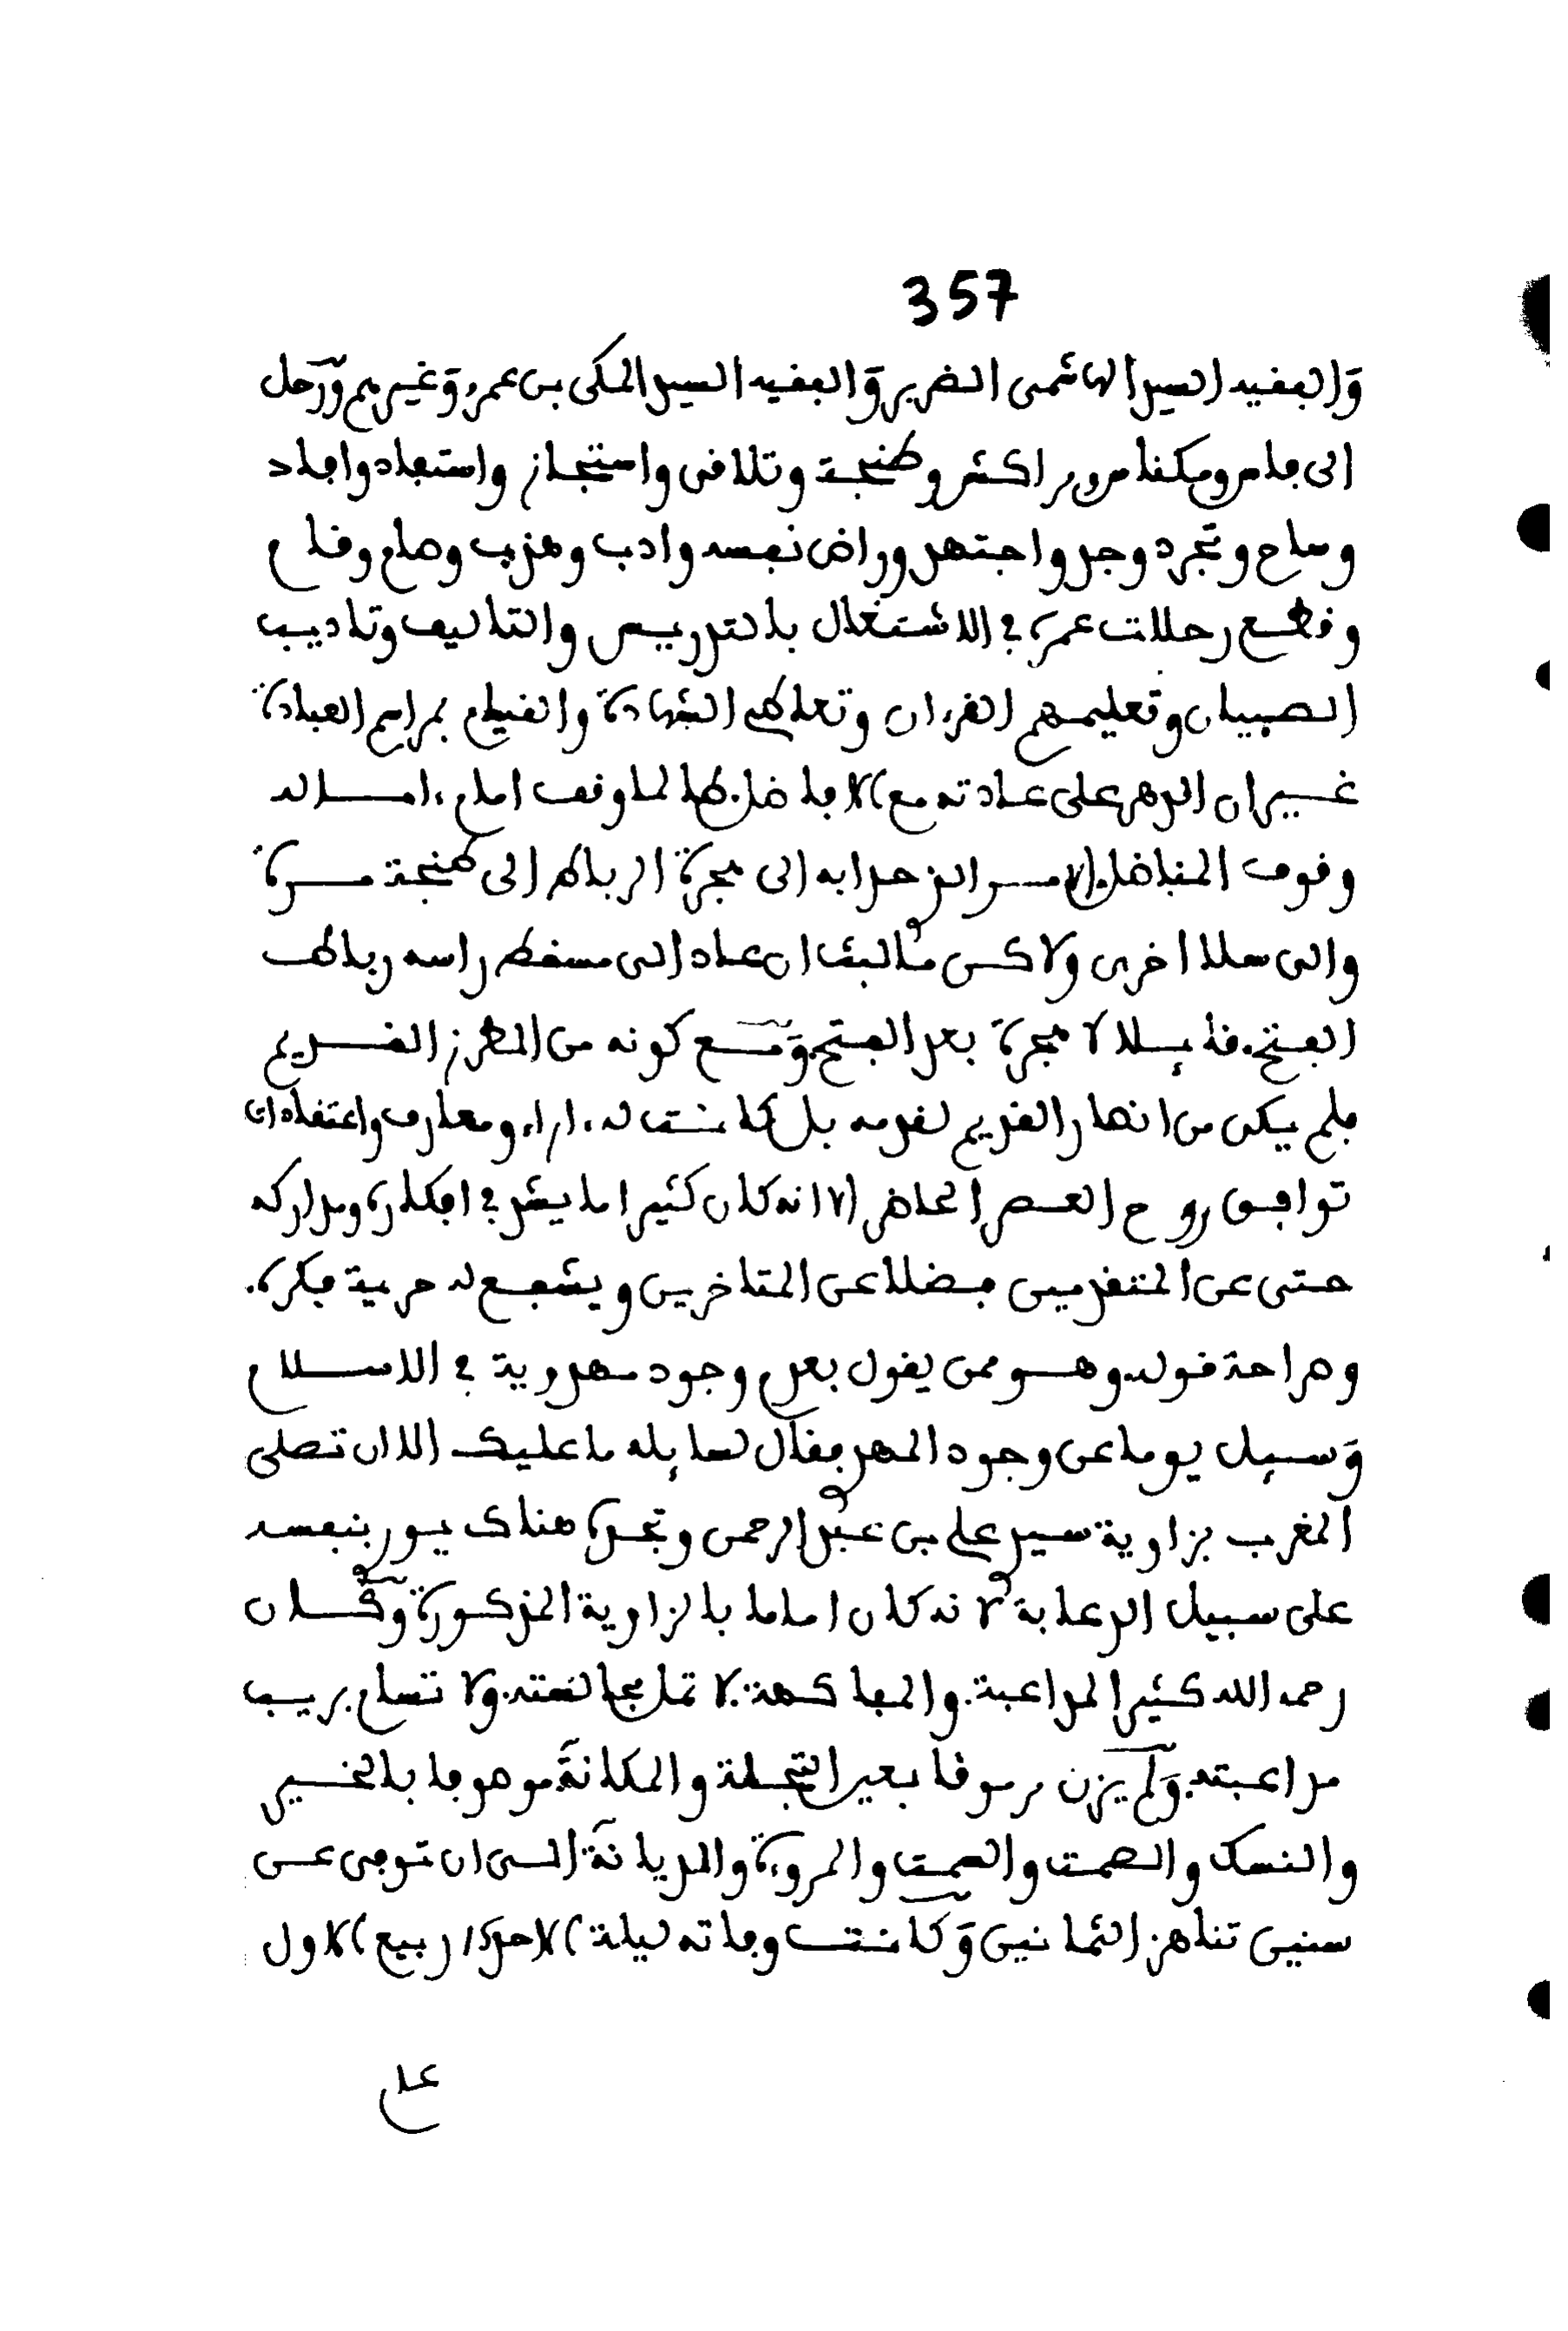 357
والفقيه السيد الهاشمى الضرير والفقيه السيد المكى بن عمرو وغيرهم ورحل
الى فاس ومكناس ومراكش وطنجة وتلاقى واستجاز واستفاد وافاد
وساح وتجرد وجد واجتهد وراض نفسه وادب وهذب وصام وقام
وقطع رحلات عمره في الاشتغال بالتدريس والتاليف وتاديب
الصبيان وتعليمهم القرءان وتعاطى الشهادة والقيام بمراسم العبادة
غير ان الدهر على عادته مع الافاضل طالما وقف امامه
وقوف المناضل الامر الذي حدا به الى هجرة الرباط الى طنجة مرة
والى سلا اخرى ولاكن ما لبث ان عاد الى مسقط راسه رباط
الفتح. قايلا لا هجرة بعد الفتح. ومع كونه من الطرز القديم
فلم يكن من انصار القديم لقدمه بل كانت له ءاراء ومعارف واعتقادات
توافق روح العصر الحاضر الا انه كان كثيرا ما يشذ في افكاره ومداركه
حتى عن المتقدمين فضلا عن المتاخرين ويشفع له حرية فكره.
وصراحة قوله. وهو ممن يقول بعدم وجود مهدوية في الاسلام
وسيل يوما عن وجود المهدي فقال لسايله ما عليك الا ان تصلى
المغرب بزاوية سيدي علي بن عبد الرحمن وتجده هناك يوري بنفسه
على سبيل الدعابة لانه كان اماما بالزاوية المذكورة وكان
رحمه الله كثير المداعبة. والمفاكهة. لا تمل مجالسته. ولا تسام بريب
مداعبته. ولم يزل مرموقا بعين التجلة والمكانة موصوفا بالخير
والنسك والصمت والسمت والمروءة والديانة الى ان توفى عن
سنين تناهز الثمانين وكانت وفاته ليلة الاحد ربيع الاول
علم